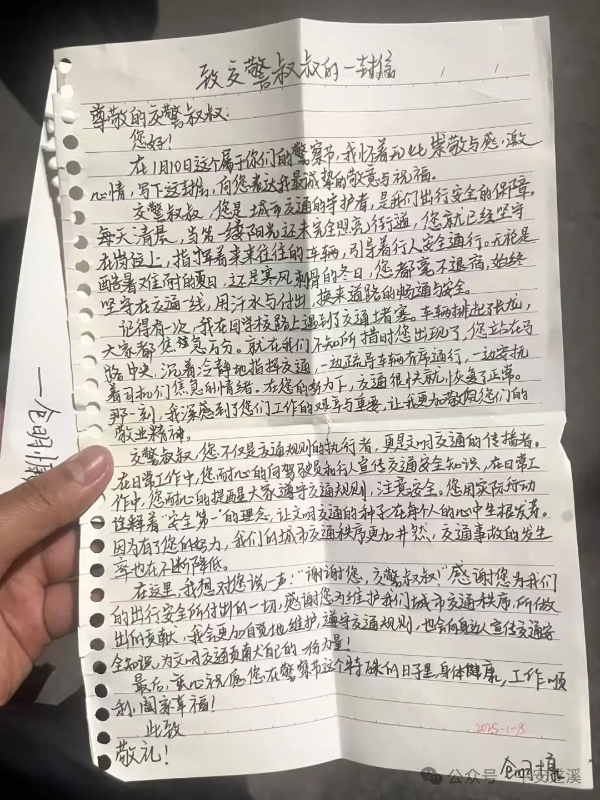 致交警叔叔的一封信
尊敬的交警叔叔:
您好!
在1月10日这个属于你们的警察节,我怀着无比崇敬与感激
心情,写下这封信,向您表达我最诚挚的敬意与祝福。
交警叔叔,您是城市交通的守护者,是我们出行安全的保障。
每天清晨,当第一缕阳光还未完全照亮街道,您就已经坚守
在岗位上,指挥着来来往往的车辆,引导着行人安全通行。无论是
酷暑难耐的夏日,还是寒风刺骨的冬日,您都毫不退缩,始终
坚守在交通一线,用汗水与付出,换来道路的畅通与安全。
记得有一次,我在回学校路上遇到了交通堵塞。车辆排起了长龙,
大家都焦急万分。就在我们不知所措时您出现了,您站在马
路中央,沉着冷静地指挥交通,一边疏导车辆有序通行,一边安抚
着司机们焦急的情绪。在您的努力下,交通很快就恢复了正常。
那一刻,我深感到了您们工作的艰辛与重要,让我更加敬佩您们的
敬业精神。
交警叔叔,您不仅是交通规则的执行者,更是文明交通的传播者。
在日常工作中,您耐心的向驾驶员和行人宣传交通安全知识,在日常工
作中,您耐心的提醒大家遵守交通规则,注意安全。您用实际行动
诠释着“安全第一”的理念,让文明交通的种子在每个人的心中生根发芽。
因为有了您的努力,我们的城市交通秩序更加井然,交通事故的发生
率也在不断降低。
在这里,我想对您说一声:“谢谢您,交警叔叔!”感谢您为我们
的出行安全所付出的一切,感谢您为维护我们城市交通秩序,所做
出的贡献,我会更加自觉地维护,遵守交通规则,也会向身边人宣传交通安
全知识,为文明交通贡献自己的一份力量!
最后,衷心祝愿您在警察节这个特殊的日子里,身体健康,工作顺
利,阖家幸福!
此致
敬礼!
2025-1-8
公众号 平安遂溪